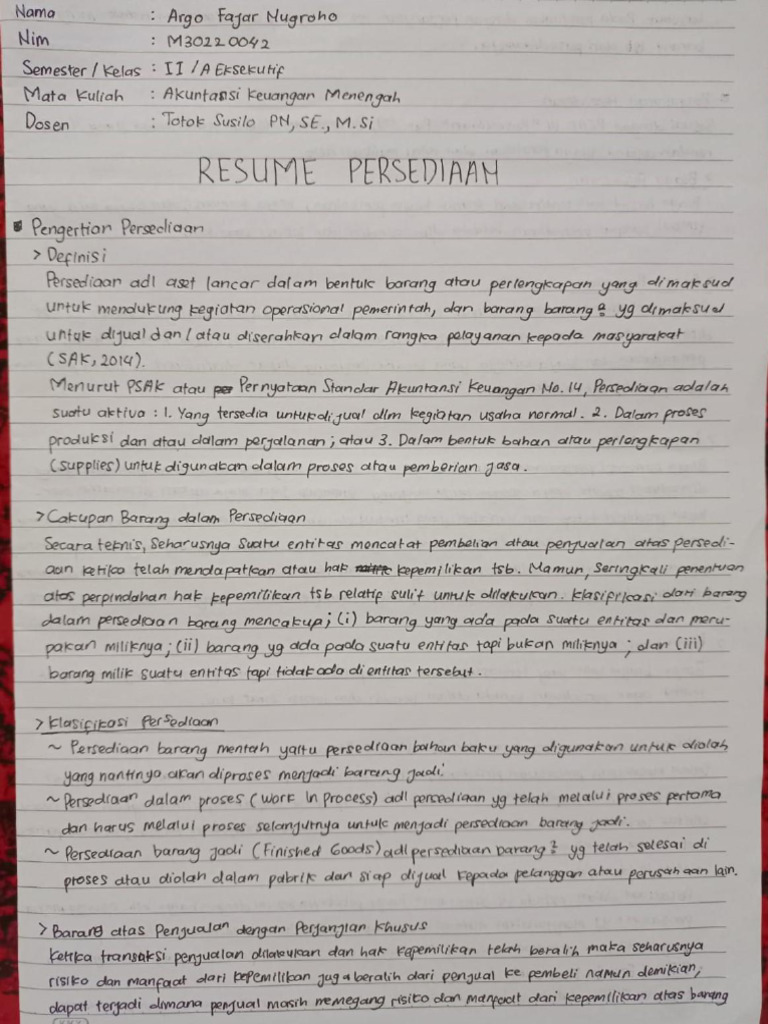 Nama : Argo Fajar Nugroho
Nim : M30220042
Semester / Kelas : II / A Eksekutif
Mata Kuliah : Akuntansi Keuangan Menengah
Dosen : Totok Susilo PN, SE., M.Si
RESUME PERSEDIAAN
Pengertian Persediaan
> Definisi
Persediaan adl aset lancar dalam bentuk barang atau perlengkapan yang dimaksud
untuk mendukung kegiatan operasional pemerintah, dan barang barang2 yg dimaksud
untuk dijual dan / atau diserahkan dalam rangka pelayanan kepada masyarakat
(SAK, 2014).
Menurut PSAK atau Pernyataan Standar Akuntansi Keuangan No. 14, Persediaan adalah
suatu aktiva : 1. Yang tersedia untuk dijual dlm kegiatan usaha normal. 2. Dalam proses
produksi dan atau dalam perjalanan ; atau 3. Dalam bentuk bahan atau perlengkapan
(supplies) untuk digunakan dalam proses atau pemberian jasa.
> Cakupan Barang dalam Persediaan
Secara teknis, seharusnya suatu entitas mencatat pembelian atau penjualan atas persedi-
aan ketika telah mendapatkan atau hak kepemilikan tsb. Namun, seringkali penentuan
atas perpindahan hak kepemilikan tsb relatif sulit untuk dilakukan. Klasifikasi dari barang
dalam persediaan barang mencakup; (i) barang yang ada pada suatu entitas dan meru-
pakan miliknya ; (ii) barang yg ada pada suatu entitas tapi bukan miliknya ; dan (iii)
barang milik suatu entitas tapi tidak ada di entitas tersebut.
> Klasifikasi Persediaan
~ Persediaan barang mentah yaitu persediaan bahan baku yang digunakan untuk diolah
yang nantinya akan diproses menjadi barang jadi.
~ Persediaan dalam proses (Work In Process) adl persediaan yg telah melalui proses pertama
dan harus melalui proses selanjutnya untuk menjadi persediaan barang jadi.
~ Persediaan barang jadi (Finished Goods) adl persediaan barang2 yg telah selesai di
proses atau diolah dalam pabrik dan siap dijual kepada pelanggan atau perusahaan lain.
> Barang atas Penjualan dengan Perjanjian Khusus
Ketika transaksi penjualan dilakukan dan hak kepemilikan telah beralih maka seharusnya
risiko dan manfaat dari kepemilikan juga beralih dari penjual ke pembeli namun demikian,
dapat terjadi dimana penjual masih memegang risiko dan manfaat dari kepemilikan atas barang